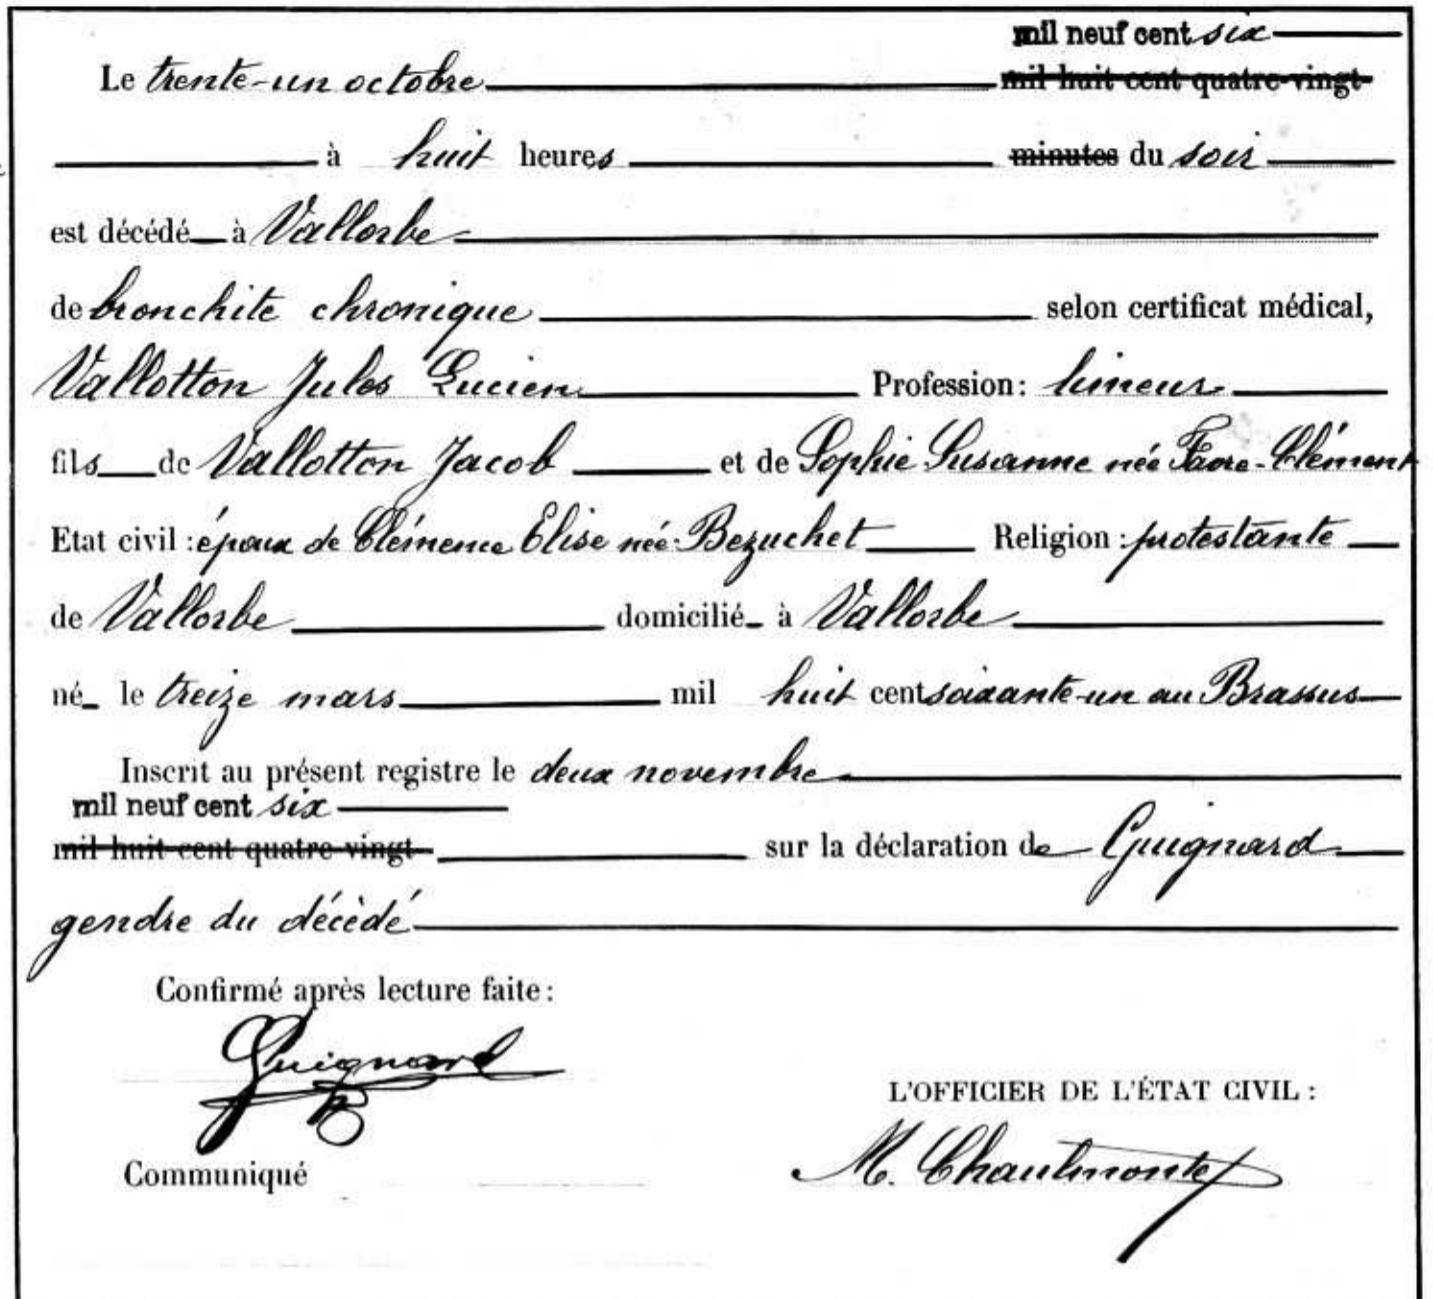 mil neuf cent six
Le trente-un octobre mil huit cent quatre-vingt-
à huit heures minutes du soir
est décédé à Vallorbe
de bronchite chronique selon certificat médical,
Vallotton Jules Lucien Profession: limeur
fils de Vallotton Jacob et de Sophie Susanne née Favre-Clément
Etat civil: époux de Clémence Elise née Bezuchet Religion: protestante
de Vallorbe domicilié à Vallorbe
né le treize mars mil huit cent soixante-un au Brassus
Inscrit au présent registre le deux novembre
mil neuf cent six
mil huit cent quatre-vingt- sur la déclaration de Guignard
gendre du décèdé
Confirmé après lecture faite:
Guignard
L'OFFICIER DE L'ÉTAT CIVIL:
Communiqué M. Chaulmontet